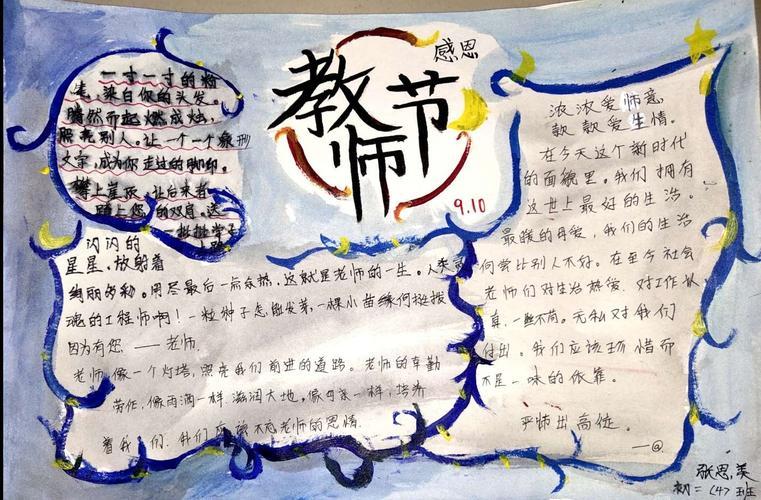 感恩
教师节
9.10
一寸一寸的粉
笔,染白你的头发。
腾然而起燃成烛,
照亮别人。让一个一个象形
文字,成为你走过的脚印。
攀上崖段,让后来者
踏上您的双肩。送
一批批学子
上路
闪闪的
星星,放射着
绚丽的
用尽最后一点余热,这就是老师的一生。人类灵
魂的工程师啊!一粒种子怎能发芽,一棵小苗缘何挺拔
因为有您 —— 老师.
老师,像一个灯塔,照亮我们前进的道路。老师的辛勤
劳作,像雨洒一样,滋润大地。像母亲一样,培养
着我们.我们应该不忘老师的恩情.
浓浓爱师意,
款款爱生情。
在今天这个新时代
的面貌里。我们拥有
这世上最好的生活。
最暖的母爱,我们的生活
何尝比别人不好。在至今社会
老师们对生活热爱.对工作认
真.一丝不苟。无私对我们
付出。我们应该珍惜而
不是一味的依靠。
严师出高位。
——@
张思
初二(4)班